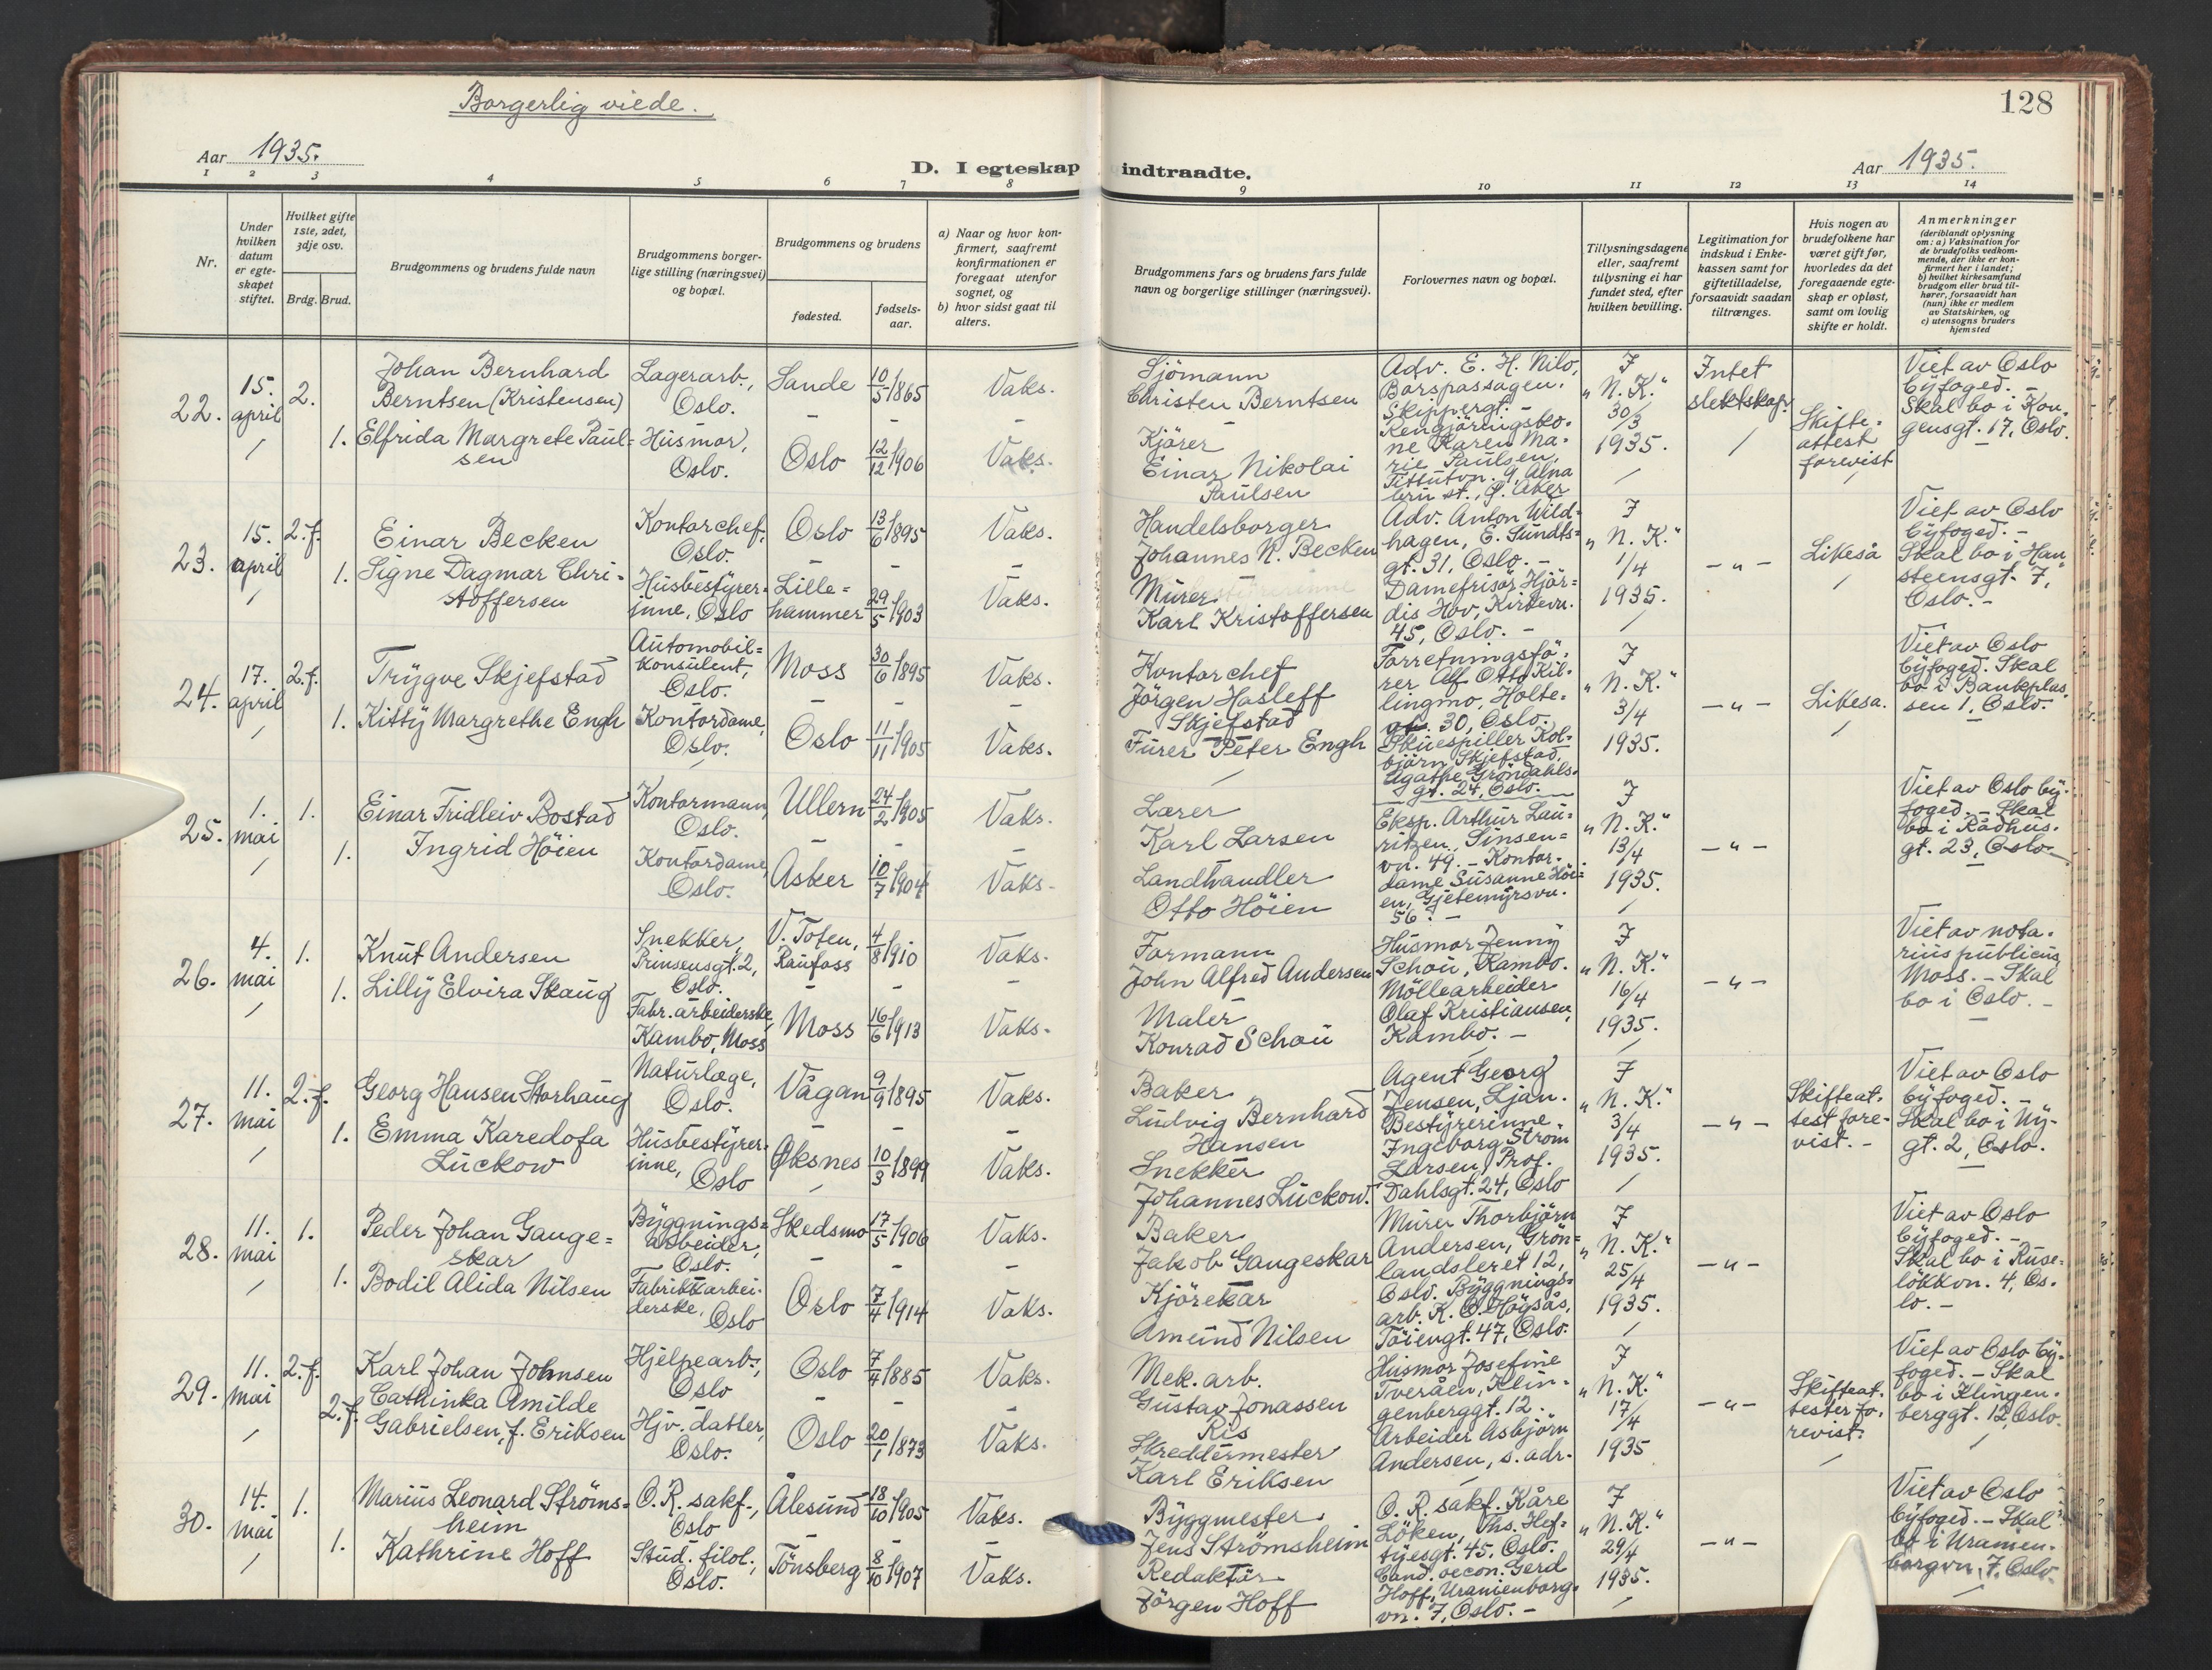 Borgerlig viede.
128
Aar 1935.
D. I egteskap indtraadte.
Aar 1935.
1 2 3 4 5 6 7 8 9 10 11 12 13 14
Nr.
Under hvilken datum er egteskapet stiftet.
Hvilket gifte 1ste, 2det, 3dje osv.
Brdg. Brud.
Brudgommens og brudens fulde navn
Brudgommens borgerlige stilling (næringsvei) og bopæl.
Brudgommens og brudens
fødested.
fødselsaar.
a) Naar og hvor konfirmert, saafremt konfirmationen er foregaat utenfor sognet, og
b) hvor sidst gaat til alters.
Brudgommens fars og brudens fars fulde navn og borgerlige stillinger (næringsvei).
Forlovernes navn og bopæl.
Tillysningsdagene eller, saafremt tillysning ei har fundet sted, efter hvilken bevilling.
Legitimation for indskud i Enkekassen samt for giftetilladelse, forsaavidt saadan tiltrænges.
Hvis nogen av brudefolkene har været gift før, hvorledes da det foregaaende egteskap er opløst, samt om lovlig skifte er holdt.
Anmerkninger
(deriblandt oplysning om: a) Vaksination for de brudefolks vedkommende, der ikke er konfirmert her i landet;
b) hvilket kirkesamfund brudgom eller brud tilhører, forsaavidt han (hun) ikke er medlem av Statskirken, og
c) utensogns bruders hjemsted
22.
15. april
2.
Johan Bernhard
Berntsen (Kristensen)
Lagerarb.,
Oslo.
Sande
10/5 1865
Vaks.
1.
Elfrida Margrete Paul=
sen
Husmor,
Oslo.
Oslo
12/12 1906
Vaks.
Sjömann
Christen Berntsen
Kjörer
Einar Nikolai
Paulsen
Adv. E. H. Nilo,
Börspassagen,
Skippergt. -
Rengjöringsko-
ne Karen Ma-
rie Paulsen,
Tittutvn. 9, Alna
bru st., Ö. Aker
F
"N. K."
30/3
1935.
Intet
slektskap.
Skifte-
attest
forevist
Viet av Oslo
byfoged. -
Skal bo i Kon-
gensgt. 17, Oslo.
23.
15. april
2.f.
Einar Becken
Kontorchef,
Oslo.
Oslo
13/6 1895
Vaks.
1.
Signe Dagmar Chri-
stoffersen
Husbestyrer-
inne, Oslo
Lille=
hammer
29/5 1903
Vaks.
Handelsborger
Johannes N. Becken
Murer
Karl Kristoffersen
Adv. Anton Wild-
hagen, E. Sundts=
gt. 31, Oslo. -
Damefrisör Hjör=
dis Hov, Kirkevn.
45, Oslo. -
F
"N. K."
1/4
1935.
- " -
Likeså
Viet av Oslo
byfoged. -
Skal bo i Han
steensgt. 7,
Oslo. -
24.
17. april
2.f.
Trygve Skjefstad
Automobil=
konsulent,
Oslo.
Moss
30/6 1895
Vaks.
1.
Kitty Margrethe Engh
Kontordame,
Oslo.
Oslo
11/11 1905
Vaks.
Kontorchef
Jörgen Hasleff
Skjefstad
Furer Peter Engh
Forretningsfö-
rer Alf Otto Kil-
lingmo, Holte-
gt. 30, Oslo.
Skuespiller Kol-
björn Skjefstad,
Agathe Gröndahls-
gt. 24, Oslo.
F
"N. K."
3/4
1935.
- " -
Likesa.
Viet av Oslo
byfoged. Skal
bo i Bankplas-
sen 1, Oslo.
25.
1. mai
1.
Einar Fridleiv Bostad
Kontormann,
Oslo.
Ullern
24/2 1905
Vaks.
1.
Ingrid Höien
Kontordame,
Oslo.
Asker
10/7 1904
Vaks.
Lærer
Karl Larsen
Landhandler
Otto Höien
Eksp. Arthur Lau-
ritzen, Sinsen=
vn. 49. - Kontor-
dame Susanne Höi=
en, Gjetemyrsvn.
56. -
F
"N. K."
13/4
1935.
- " -
Viet av Oslo by-
foged. - Skal
bo i Rådhus-
gt. 23, Oslo.
26.
4. mai
1.
Knut Andersen
Snekker,
Prinsensgt. 2,
Oslo.
V. Toten,
Raufoss
4/8 1910
Vaks.
1.
Lilly Elvira Skaug
Fabr. arbeiderske,
Kambo, Moss
Moss
16/6 1913
Vaks.
Formann
John Alfred Andersen
Maler
Konrad Schou
Husmor Jenny
Schou, Kambo.
Möllearbeider
Olaf Kristiansen,
Kambo. -
F
"N. K."
16/4
1935.
- " -
Viet av nota-
rius publicus
Moss. - Skal
bo i Oslo. -
27.
11. mai
2.f.
Georg Hansen Storhaug
Naturlæge,
Oslo.
Vågan
9/9 1895
Vaks.
1.
Emma Karedofa
Luckow
Husbestyrer-
inne,
Oslo
Öksnes
10/3 1899
Vaks.
Baker
Ludvig Bernhard
Hansen
Snekker
Johannes Luckow.
Agent Georg
Jensen, Ljan.
Bestyrerinne
Ingeborg Ström
Larsen, Prof.
Dahlsgt. 24, Oslo
F
"N. K."
3/4
1935.
- " -
Skifteat-
test fore-
vist. -
Viet av Oslo
byfoged. -
Skal bo i Ny-
gt. 2, Oslo.
28.
11. mai
1.
Peder Johan Gange=
skar
Bygnings=
arbeider,
Oslo.
Skedsmo
17/5 1906
Vaks.
1.
Bodil Alida Nilsen
Fabrikkarbei-
derske, Oslo
Oslo
7/4 1914
Vaks.
Baker
Jakob Gangeskar
Kjörekar
Amund Nilsen
Murer Thorbjörn
Andersen, Grön-
landsleret 12,
Oslo. Bygnings-
arb. K. O. Höysås,
Töiengt. 47, Oslo.
F
"N. K."
25/4
1935.
- " -
Viet av Oslo
byfoged. -
Skal bo i Ruse-
lökkvn. 4, Os-
lo. -
29.
11. mai
2.f.
Karl Johan Johnsen
Hjelpearb.,
Oslo
Oslo
7/4 1885
Vaks.
2.f.
Cathinka Amilde
Gabrielsen, f. Eriksen
Hjv. datter,
Oslo.
Oslo
20/1 1873
Vaks.
Mek. arb.
Gustav Jonassen
Ris
Skreddermester
Karl Eriksen
Husmor Josefine
Tveråen, Klin-
genberggt. 12.
Arbeider Asbjörn
Andersen, s. adr.
F
"N. K."
17/4
1935
- " -
Skifteat-
tester fo-
revist.
Viet av Oslo by-
foged. - Skal
bo i Klingen-
berggt. 12, Oslo.
30.
14. mai
1.
Marius Leonard Ströms=
heim
O. R. sakf.,
Oslo
Ålesund
18/10 1905
Vaks.
1.
Kathrine Hoff
Stud. filol.,
Oslo.
Tönsberg
8/10 1907
Vaks.
Byggmester
Jens Strömsheim
Redaktör
Jörgen Hoff
O. R. sakf. Kåre
Löken, Ths. Hef-
tyesgt. 45, Oslo.
Cand. oecon. Gerd
Hoff, Uranienborg-
vn. 7, Oslo. -
F
"N. K."
29/4
1935.
- " -
Viet av Oslo
byfoged. - Skal
bo i Uranien-
borgvn. 7, Oslo.